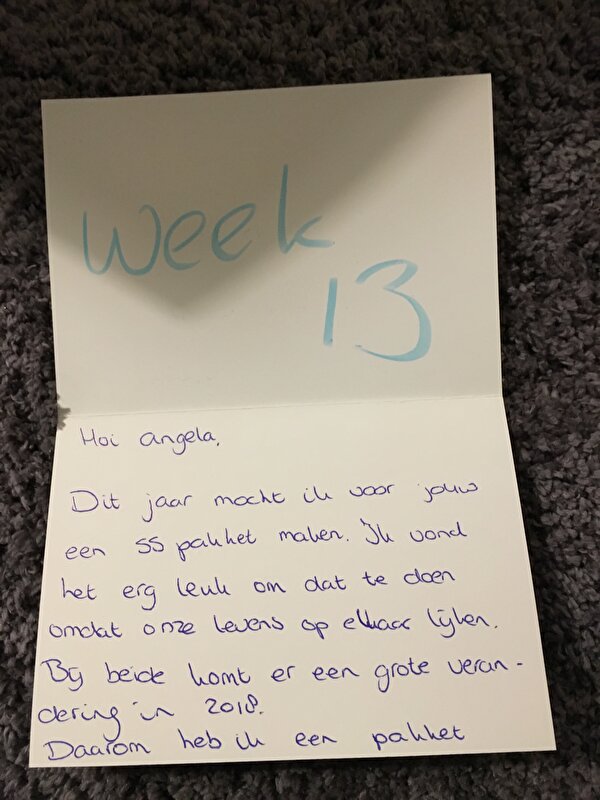 Week
13
Hoi Angela,
Dit jaar mocht ik voor jouw
een SS pakket maken. Ik vond
het erg leuk om dat te doen
omdat onze levens op elkaar lijken.
Bij beide komt er een grote veran-
dering in 2018.
Daarom heb ik een pakket